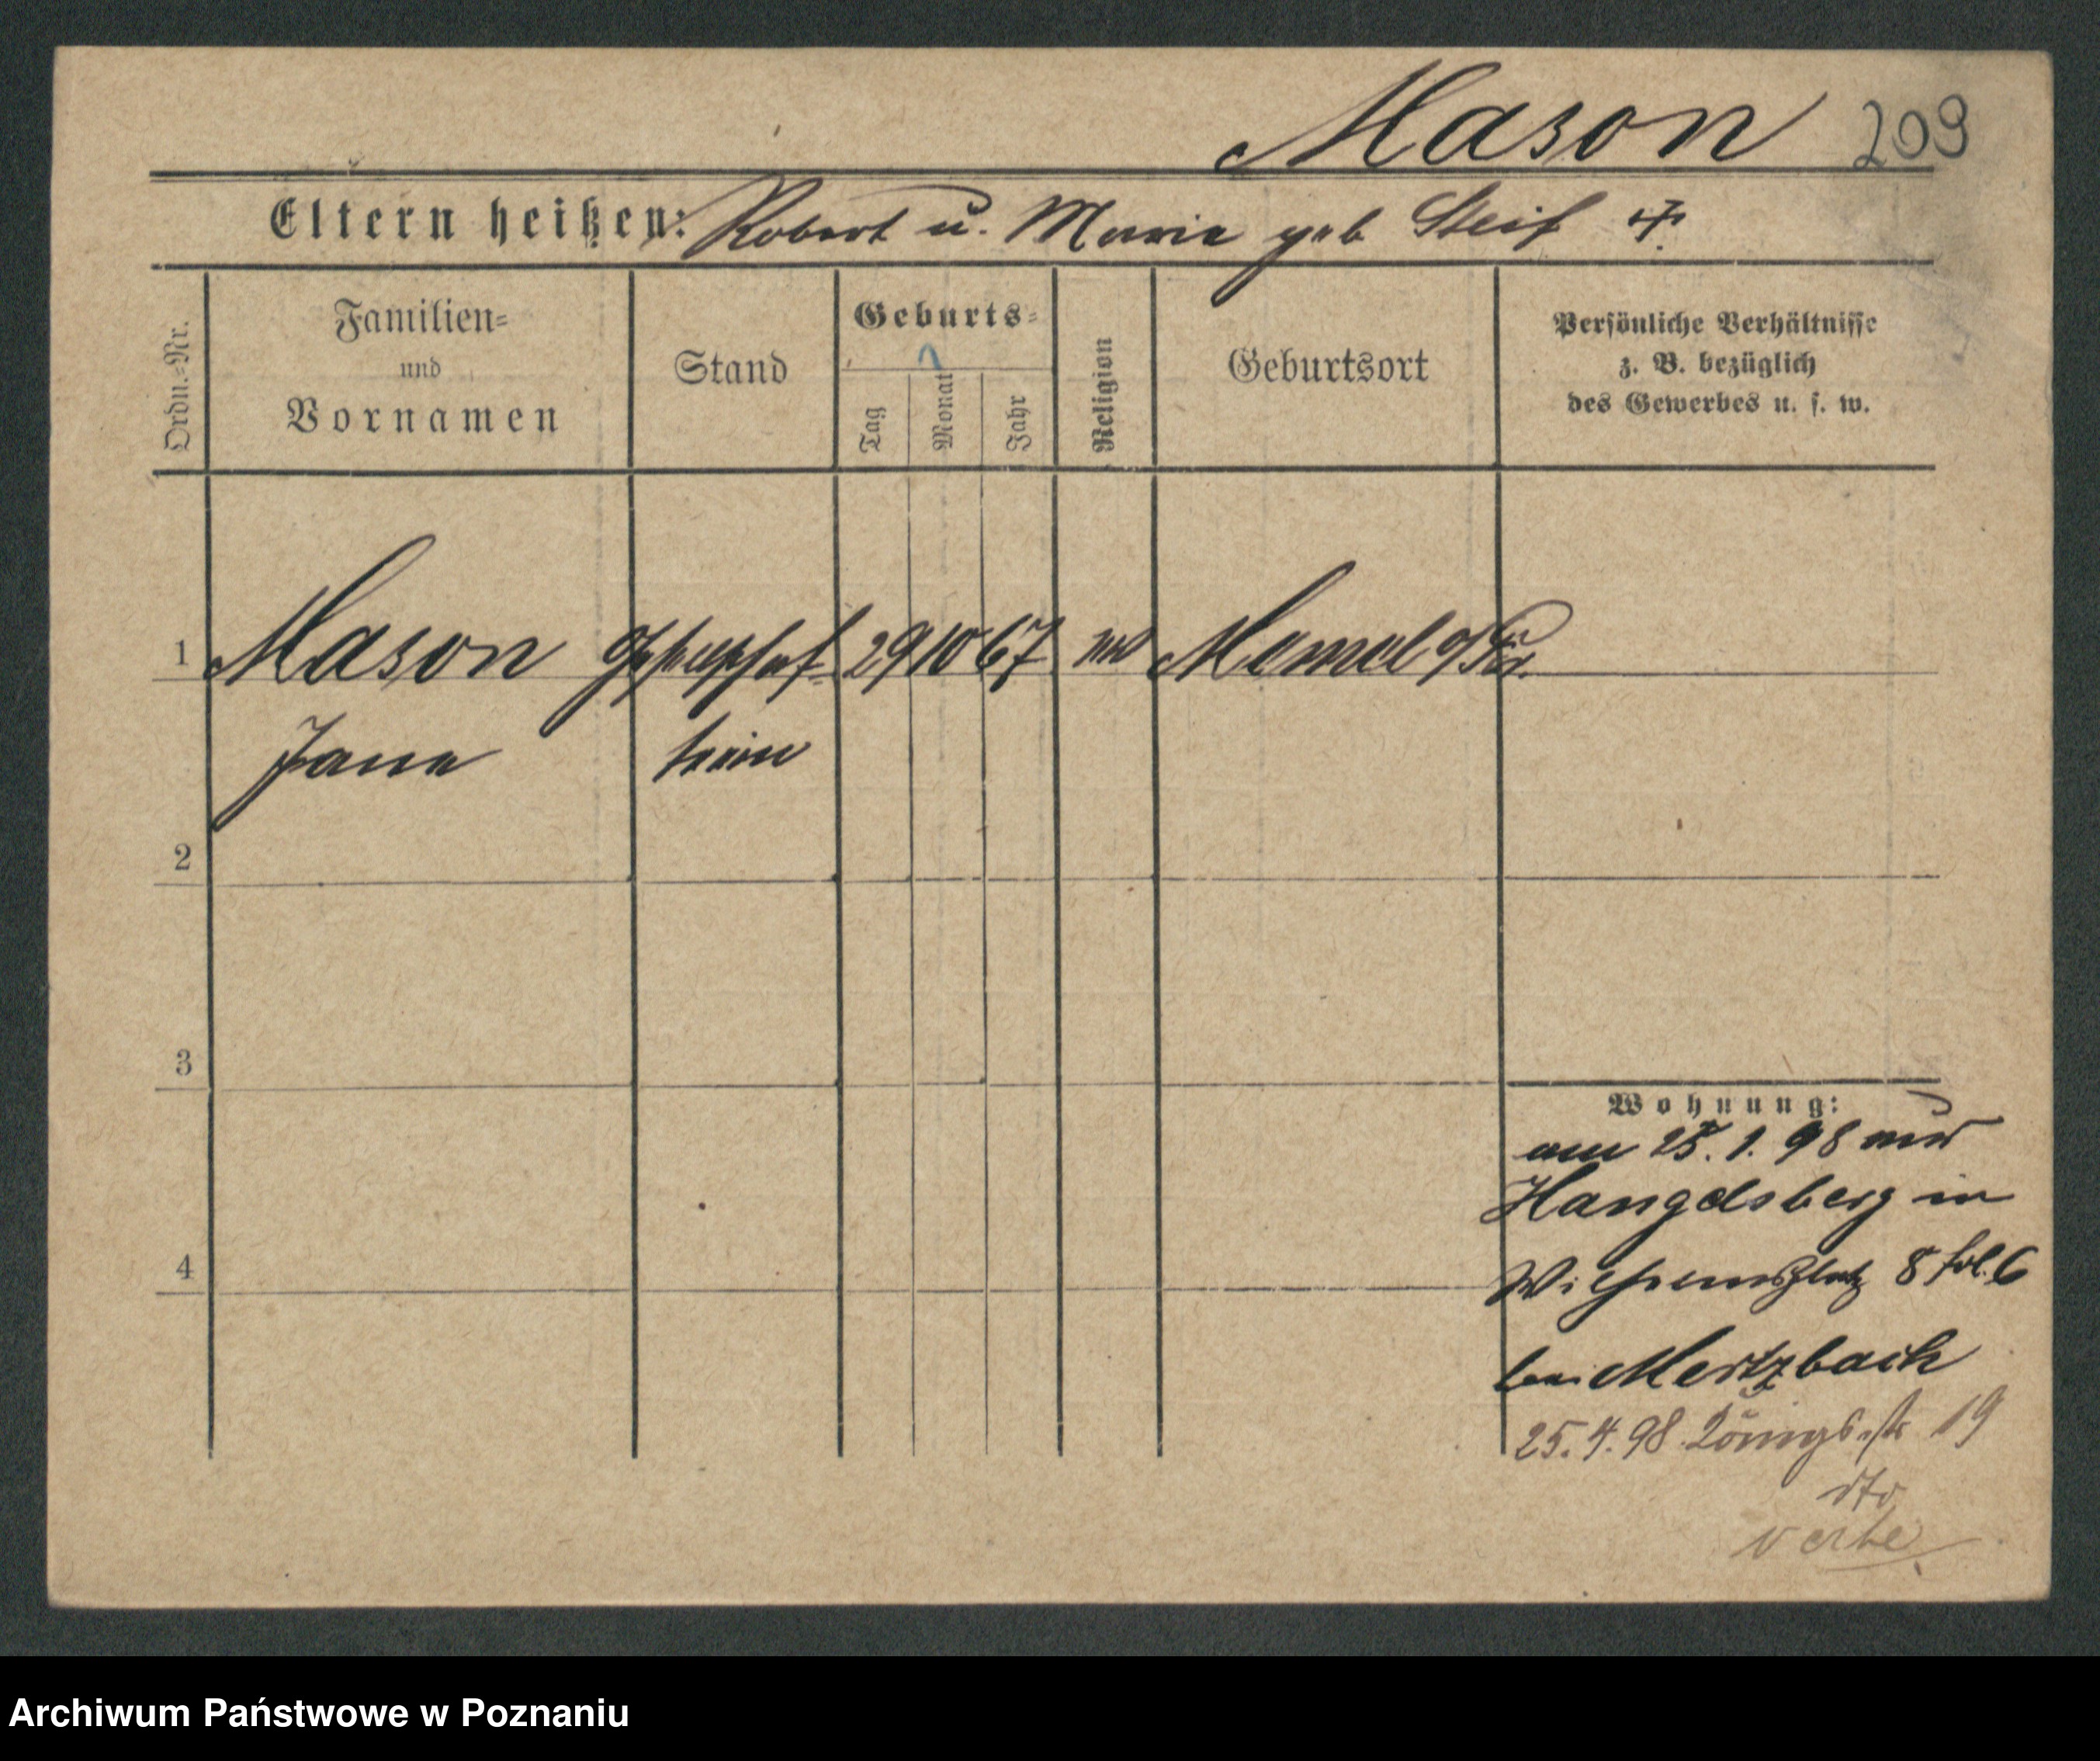 Mason 209
Eltern heißen: Robert u. Marie geb Steif
Ordn.-Nr.
Familien-
und
Vornamen
Stand
Geburts-
Tag
Monat
Jahr
Religion
Geburtsort
Persönliche Verhältnisse
z. B. bezüglich
des Gewerbes u. s. w.
1 Mason Gesellschaf- 29 10 67 Memel o/Pr.
Jane terin
2
3
Wohnung:
am 25. 1. 98 aus
Hangelsberg in
4
Wilhelmsplatz 8 fol. 6
bei Mertzbach
25. 4. 98. Königsstr 19
dto
Archiwum Państwowe w Poznaniu